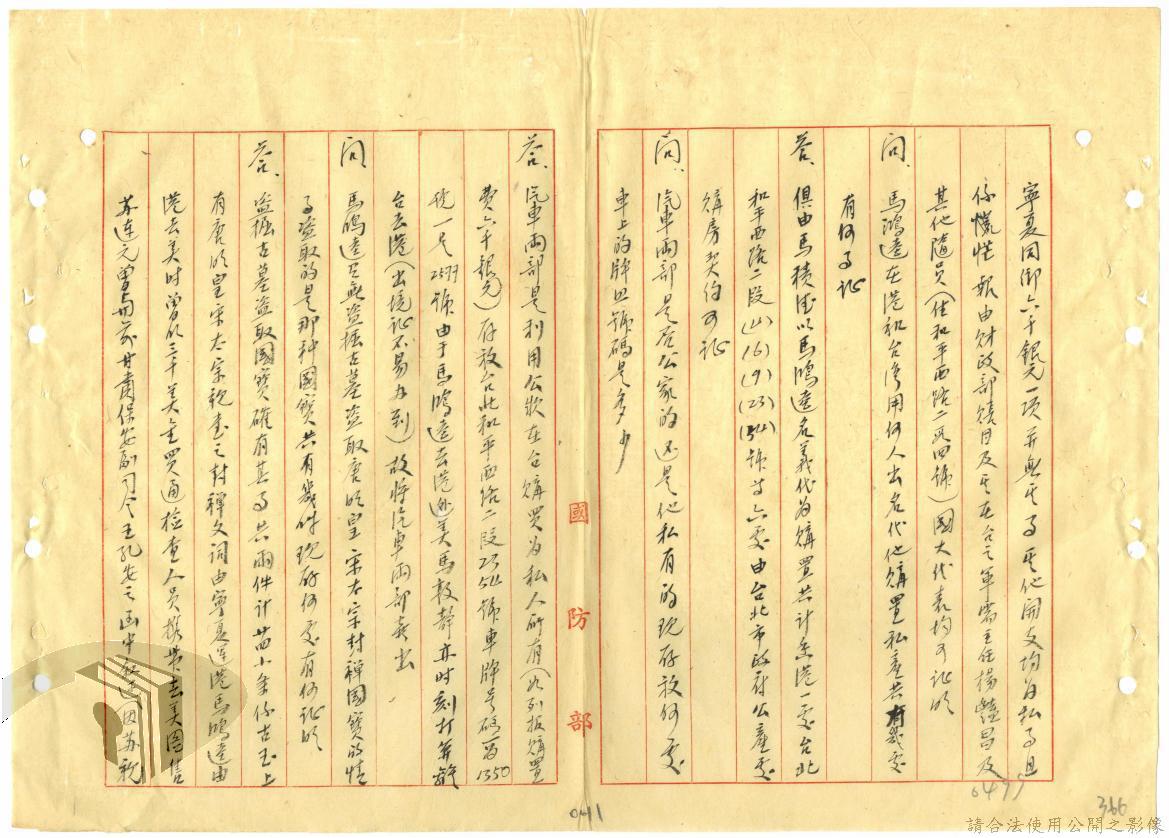 寧夏同鄉六千銀元一項并無其事其他開支均為私事且
係慌性報由財政部績目及其在台之軍需主任楊鏸昌及
其他隨員(住和平西路二段四號)國大代表均可証明
問、馬鴻逵在港和台灣用何人出名代他購置私產共有幾處
有何事証
答、俱由馬積德以馬鴻逵名義代為購置共計香港一處台北
和平西路二段(4)(16)(9)(23)(154)號等六處由台北市政府公產處
購房契約可証
問、汽車兩部是否公家的还是他私有的現存放何處
車上的牌照號碼是多少
國防部
答、汽車兩部是利用公款在台購買为私人所有(如列报購置
費六千銀元)存放台北和平西路二段154號車牌号碼一為1350
號一是2599號由于馬鴻逵去港逃美馬敦靜亦時刻打算離
台去港(出境証不易办到)故將汽車兩部賣出
問、馬鴻逵是否盜掘古墓盜取唐明皇宋太宗封禪國寶的情
事盜取的是那种國寶共有幾件現存何處有何証明
答、盜掘古墓盜取國寶確有其事共兩件計廿四小条係古玉上
有唐明皇宋太宗親書之封禪文詞由寧夏运港馬鴻逵由
港去美时曾以三千美金買通检查人員携帶去美圖售
苏連元曾与前甘肅保安副司令王孔安之函中叙述因苏親
041
0499
366
請合法使用公開之影像